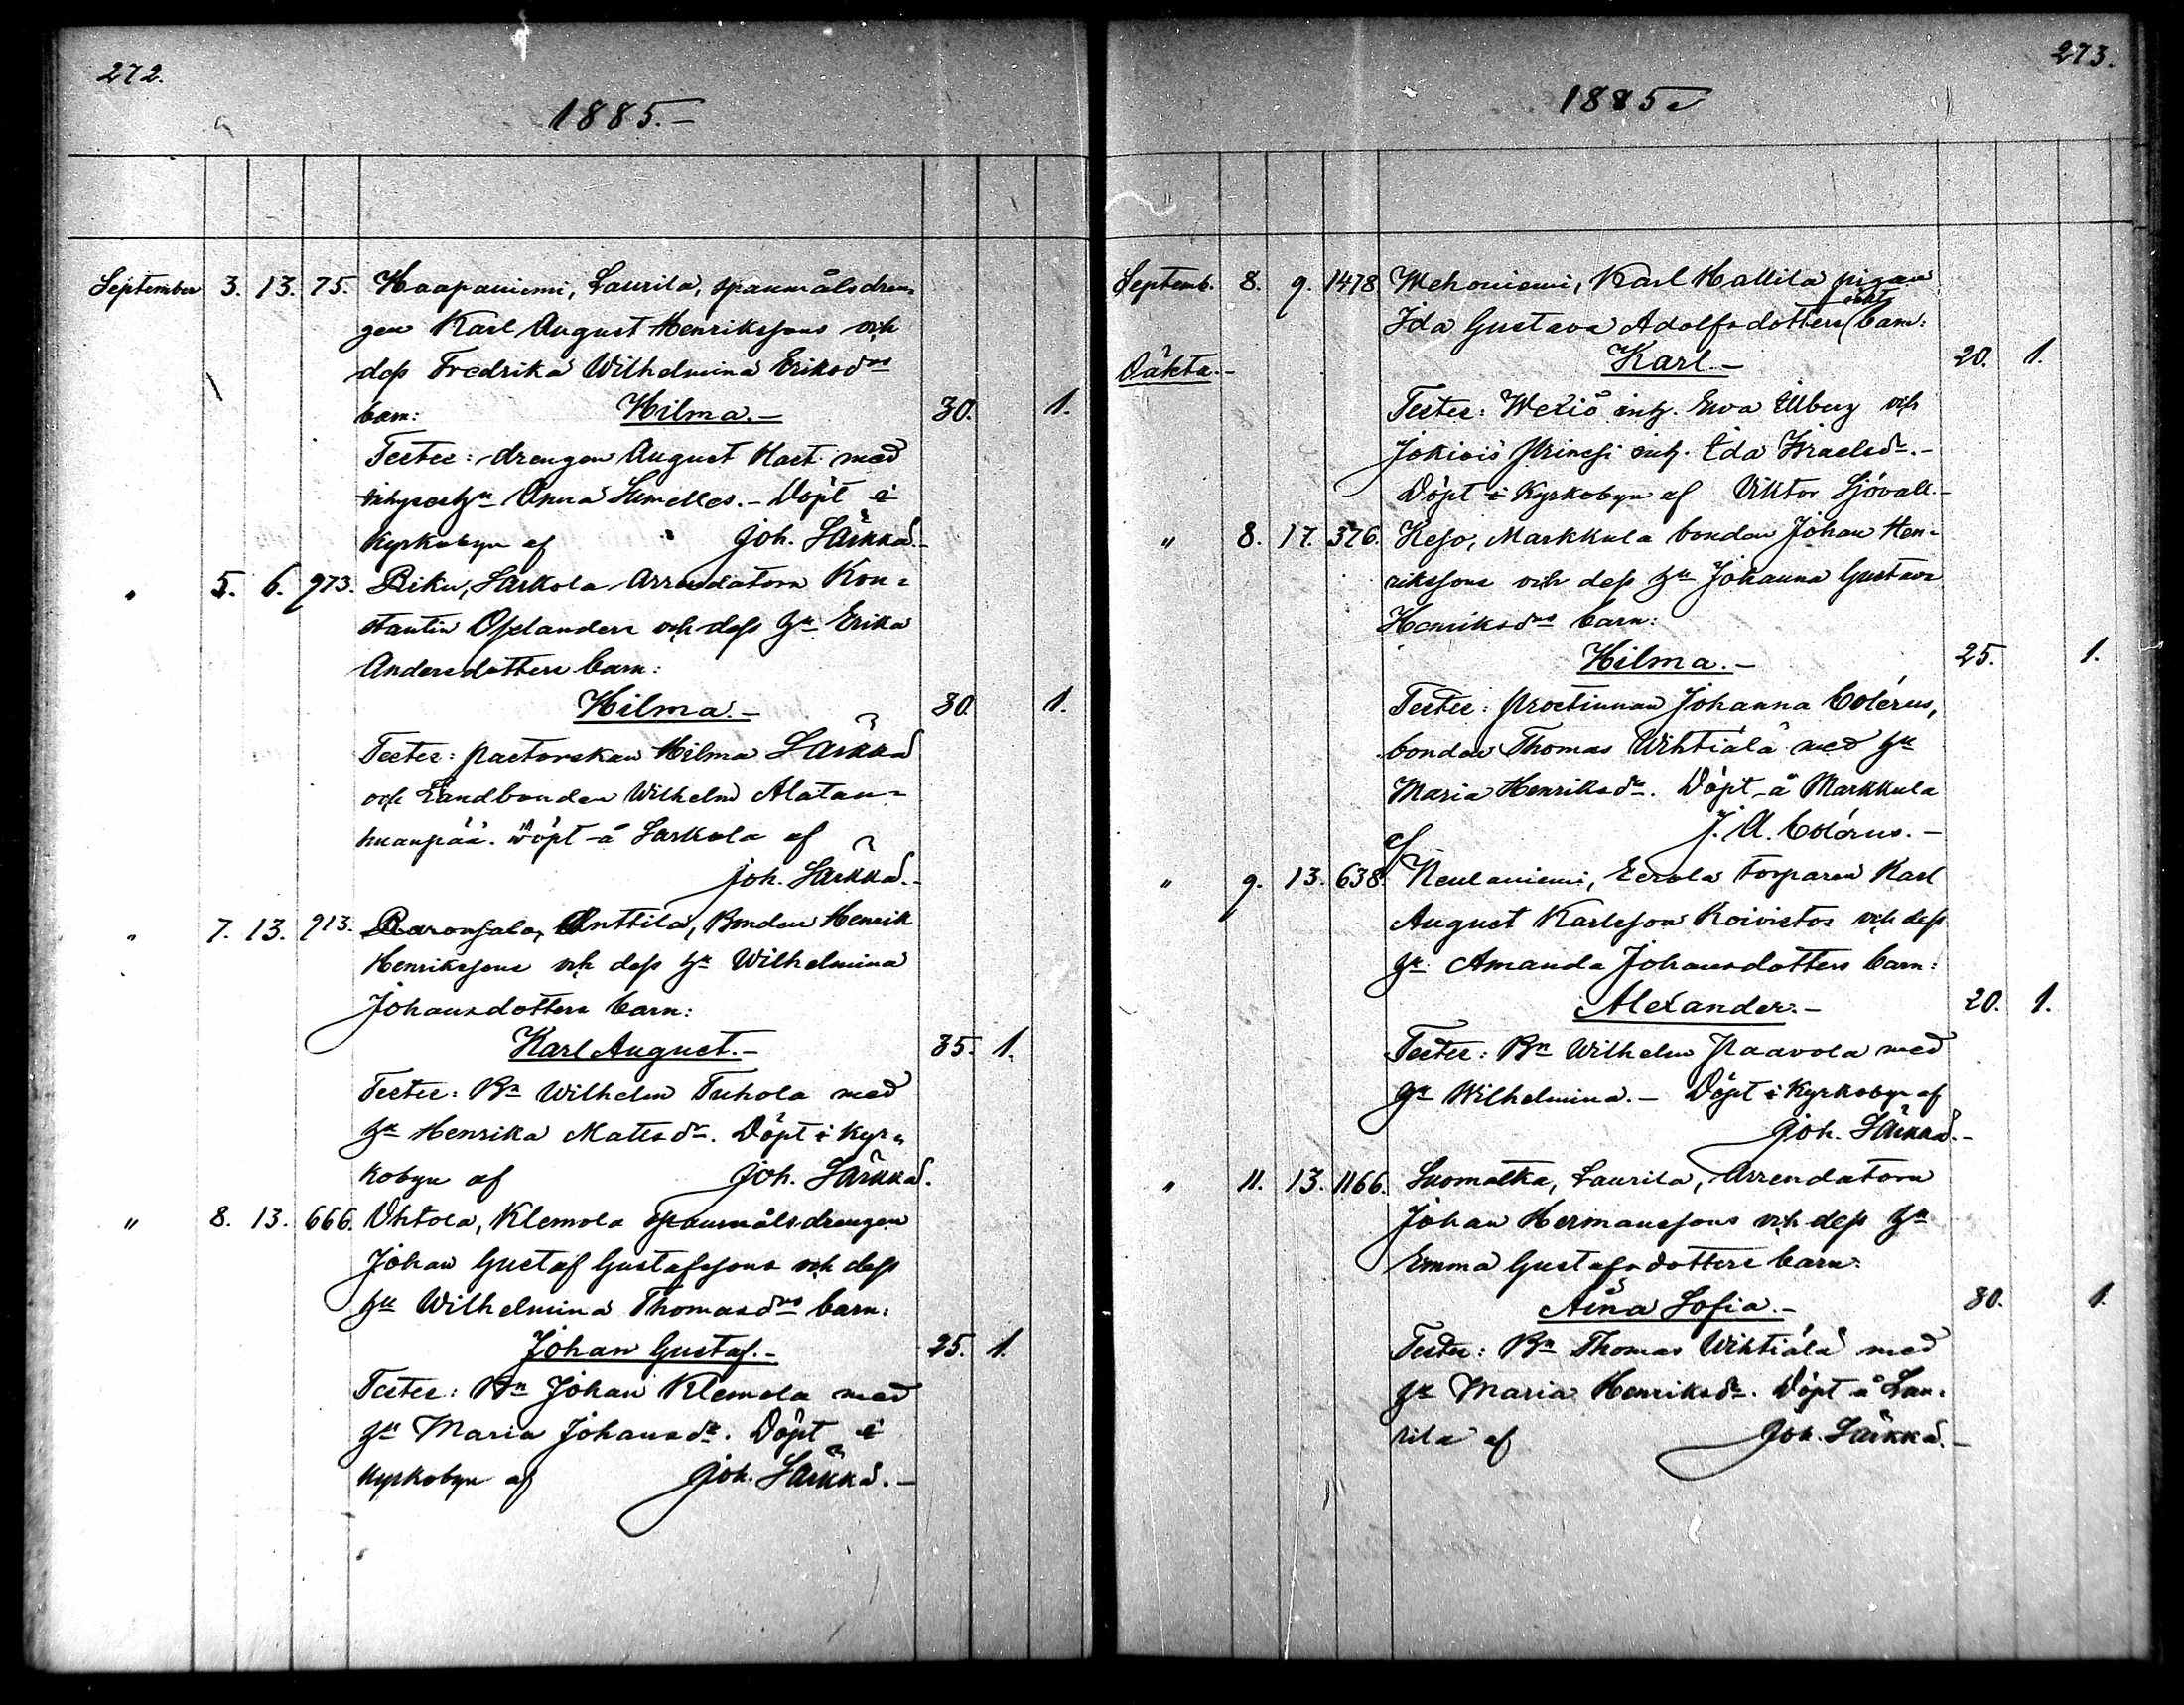 272.
1885.-
September 3. 13. 75. Haapaniemi, Laurila, spanmålsdren-
gen Karl August Henrikssons och
dess Fredrika Wilhelmina Eriksdrs
barn: Hilma.- 30. 1.
Testes: drengen August Mart. med
Anna Döpt i
Kyrkobyn af Joh. Särkkä.-
" 5. 6. 973. Riku, Sarkola Arrendatorn Kon-
stantin och dess hu Erika
Andersdotters barn:
Hilma.- 30. 1.
Testes: pastorskan Hilma Särkkä
och Landbonden Wilhelm Alatan-
huanpää. Döpt å Sarkola af
Joh. Särkkä.-
" 7. 13. 913. Anttila, Bonden Henrik
Henrikssons och dess hu Wilhelmina
Johansdotters barn:
Karl August.- 35. 1.
Testes: Bn Wilhelm Tuhola med
hu Henrika Mattsdr. Döpt i Kyr-
kobyn af Joh. Särkkä.
" 8. 13. 666. Uhtola, Klemola spanmålsdrengen
Johan Gustaf Gustafssons och dess
hu Wilhelmina Thomasdrs barn:
Johan Gustaf.- 25. 1.
Testes: Bn Johan Klemola med
hu Maria Johansdr. Döpt i
Kyrkobyn af Joh. Särkkä.-
273.
1885
Septemb. 8. 9. 1478 Wehoniemi, Karl Hallila pigan
Ida Gustava Adolfsdotters barn:
Oäkta.- Karl.- 20. 1.
Testes: Wexiö inh. Ewa Ellberg och
Jokiois inh. Ida Israelsdr.-
Döpt i Kyrkobyn af Viktor Sjövall.-
" 8. 17. 376. Kejo, Markkula bonden Johan Hen-
rikssons och dess hu Johanna Gustava
Henriksdrs barn:
Hilma.- 25. 1.
Testes: prostinnan Johanna Colérus,
bonden Thomas Wihtiälä med hu
Maria Henriksdr. Döpt å Markkula
af J. A. Colérus.-
" 9. 13. 638. Neulaniemi, Eerola torparen Karl
August Karlsson Koivistos och dess
hu Amanda Johansdotters barn:
Alexander.- 20. 1.
Testes: Bn Wilhelm Paavola med
hu Wilhelmina.- Döpt i Kyrkobyn af
Joh. Särkkä.-
" 11. 13. 1166. Suomatka, Laurila, Arrendatorn
Johan Hermanssons och dess hu
Emma Gustafsdotters barn:
Aina Sofia.- 30. 1.
Testes: Bn Thomas Wihtiälä med
hu Maria Henriksdr. Döpt å Lau-
rila af Joh. Särkkä.-